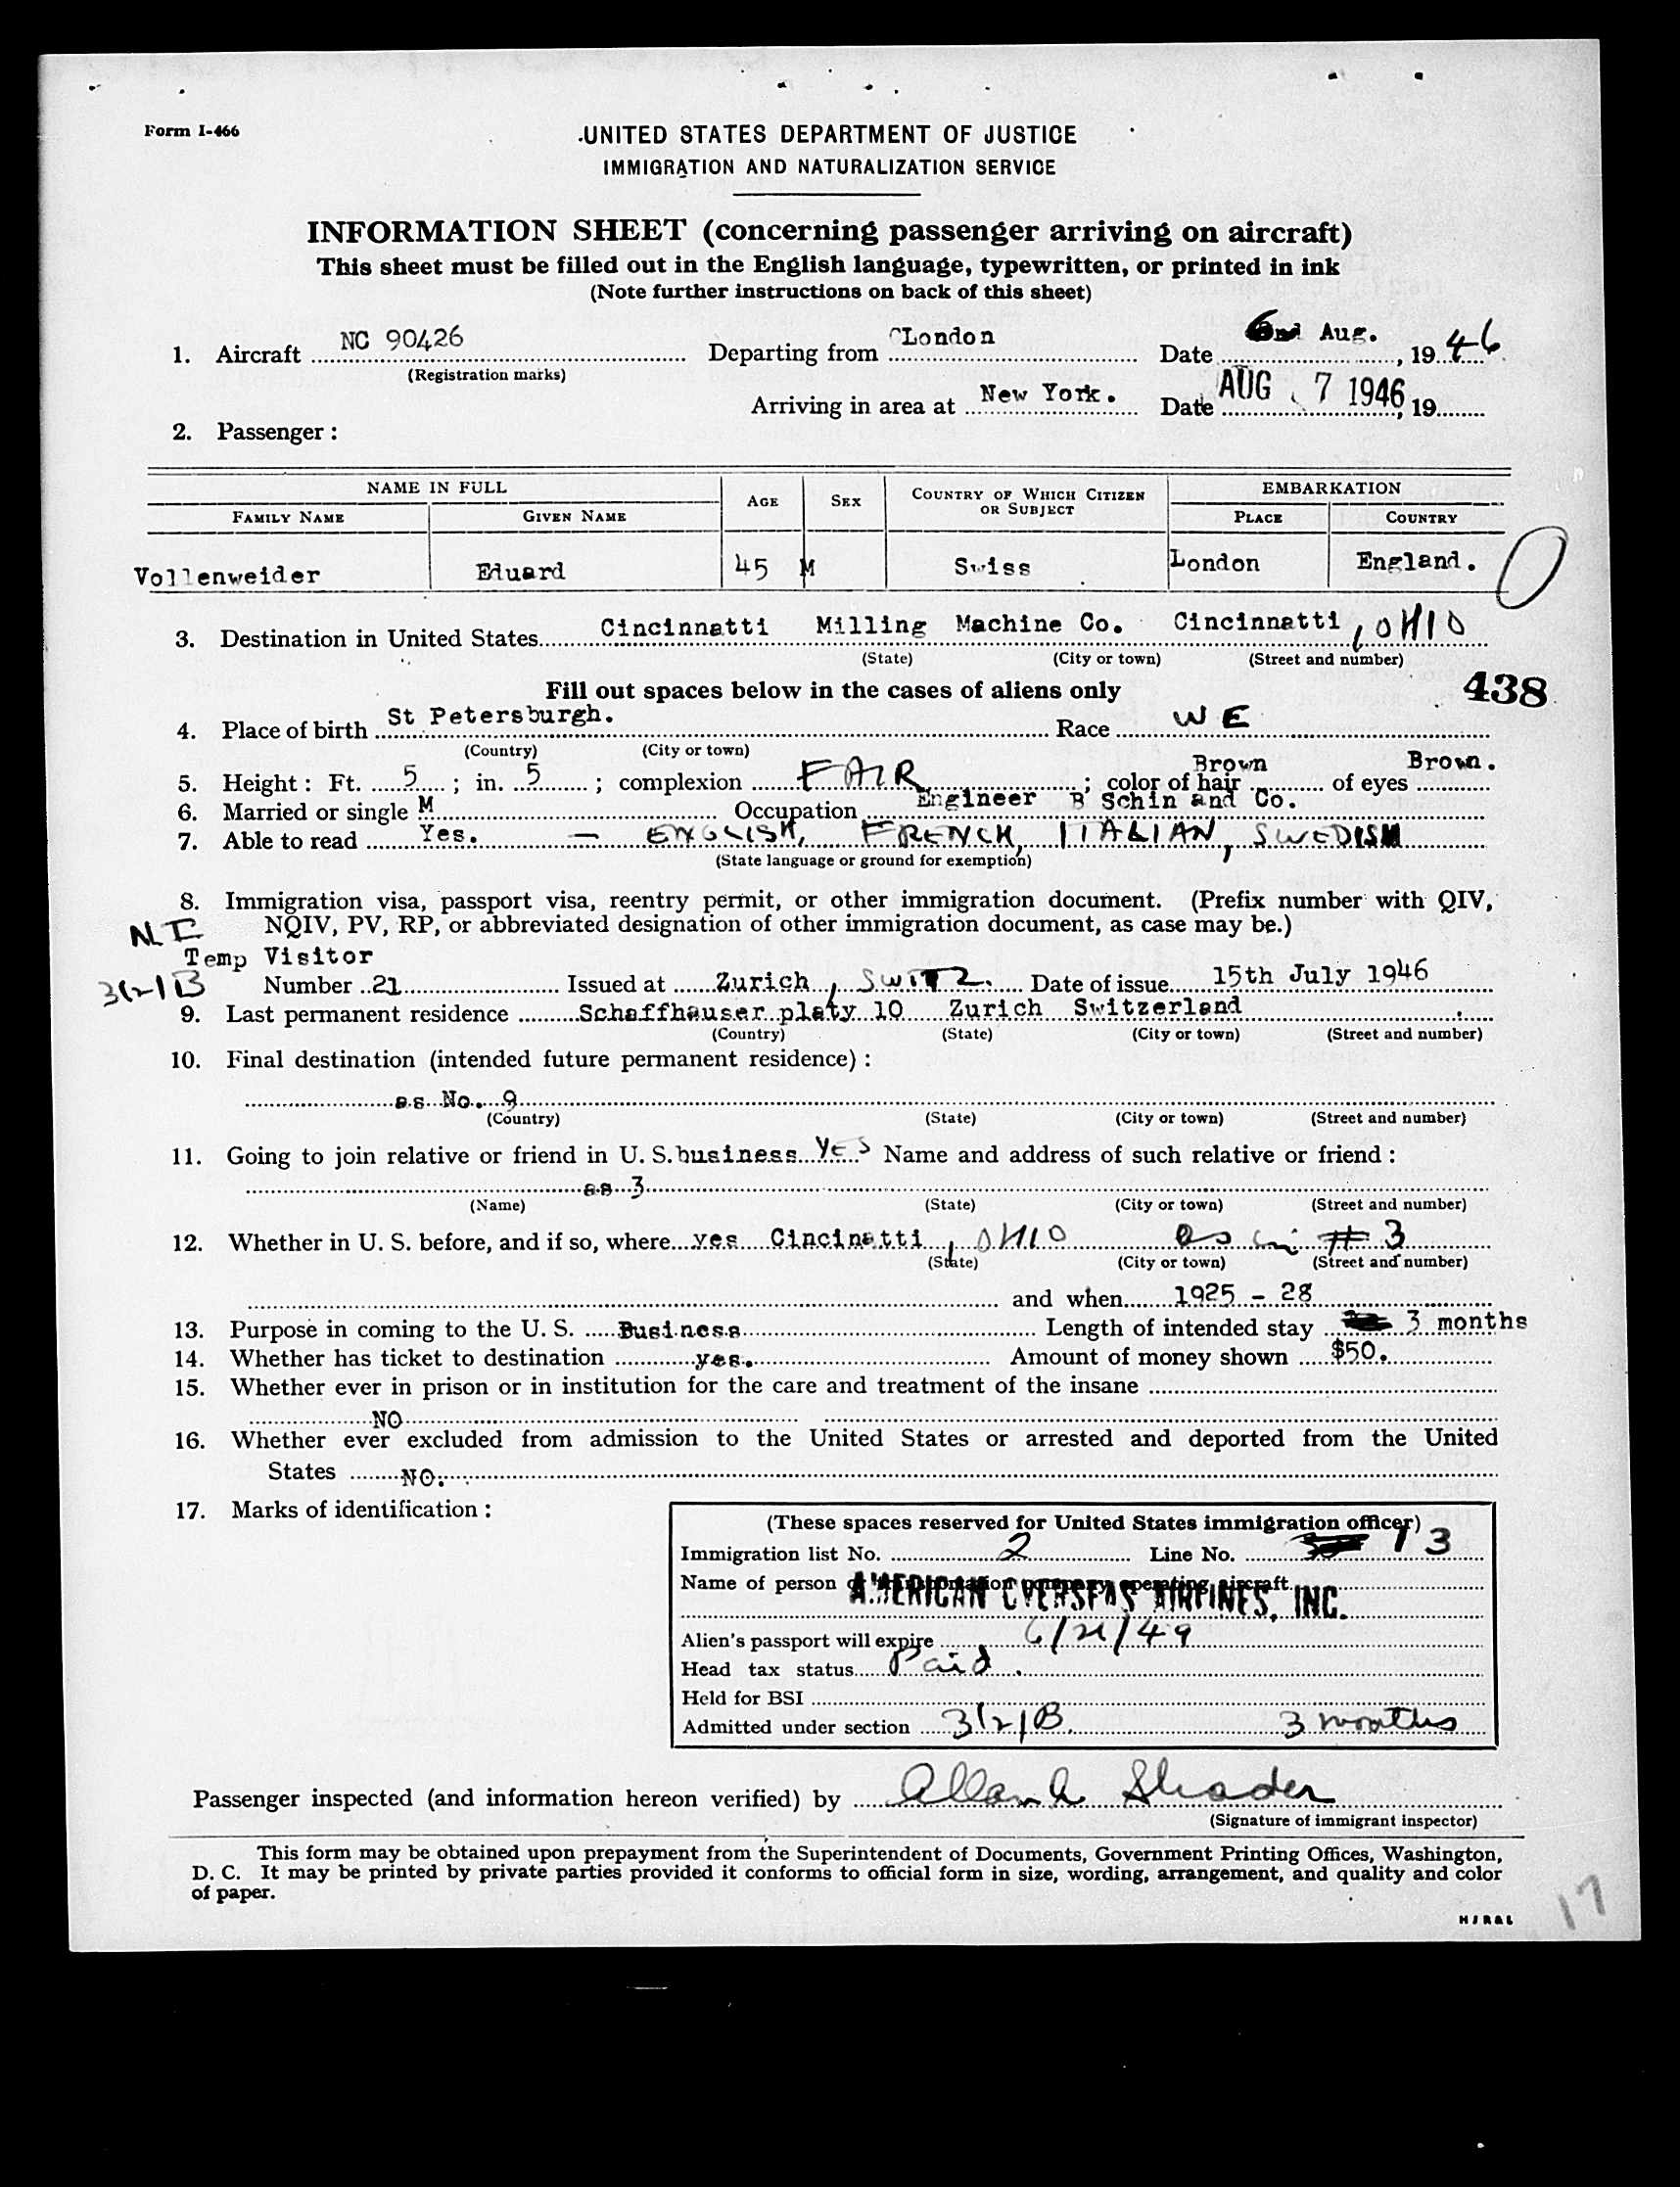 Form I-466
UNITED STATES DEPARTMENT OF JUSTICE
IMMIGRATION AND NATURALIZATION SERVICE
INFORMATION SHEET (concerning passenger arriving on aircraft)
This sheet must be filled out in the English language, typewritten, or printed in ink
(Note further instructions on back of this sheet)
1. Aircraft NC 90426 Departing from London Date 6 Aug. , 1946
(Registration marks)
Arriving in area at New York. Date AUG 7 1946, 19
2. Passenger :
NAME IN FULL AGE SEX COUNTRY OF WHICH CITIZEN OR SUBJECT EMBARKATION
FAMILY NAME GIVEN NAME PLACE COUNTRY
Vollenweider Eduard 45 M Swiss London England.
3. Destination in United States Cincinnatti Milling Machine Co. Cincinnatti, OHIO
(State) (City or town) (Street and number)
Fill out spaces below in the cases of aliens only 438
4. Place of birth St Petersburgh. Race W E
(Country) (City or town)
5. Height : Ft. 5 ; in. 5 ; complexion FAIR ; color of hair Brown of eyes Brown.
6. Married or single M Occupation Engineer B Schin and Co.
7. Able to read Yes. — ENGLISH, FRENCH, ITALIAN, SWEDISH
(State language or ground for exemption)
8. Immigration visa, passport visa, reentry permit, or other immigration document. (Prefix number with QIV,
NQIV, PV, RP, or abbreviated designation of other immigration document, as case may be.)
Temp Visitor
3(2)B Number 21 Issued at Zurich, SWITZ. Date of issue 15th July 1946
9. Last permanent residence Schaffhauser platy 10 Zurich Switzerland
(Country) (State) (City or town) (Street and number)
10. Final destination (intended future permanent residence) :
as No. 9
(Country) (State) (City or town) (Street and number)
11. Going to join relative or friend in U. S. business YES Name and address of such relative or friend :
as 3
(Name) (State) (City or town) (Street and number)
12. Whether in U. S. before, and if so, where yes Cincinatti, OHIO as in # 3
(State) (City or town) (Street and number)
and when 1925 - 28
13. Purpose in coming to the U. S. Business Length of intended stay 3 months
14. Whether has ticket to destination yes. Amount of money shown $50.
15. Whether ever in prison or in institution for the care and treatment of the insane
NO
16. Whether ever excluded from admission to the United States or arrested and deported from the United
States NO.
17. Marks of identification :
(These spaces reserved for United States immigration officer)
Immigration list No. 2 Line No. 13
Name of person or transportation company operating aircraft
AMERICAN OVERSEAS AIRLINES, INC.
Alien's passport will expire 6/21/49
Head tax status Paid.
Held for BSI
Admitted under section 3(2)B. 3 months
Passenger inspected (and information hereon verified) by Allan Shader
(Signature of immigrant inspector)
This form may be obtained upon prepayment from the Superintendent of Documents, Government Printing Offices, Washington,
D. C. It may be printed by private parties provided it conforms to official form in size, wording, arrangement, and quality and color
of paper.
17